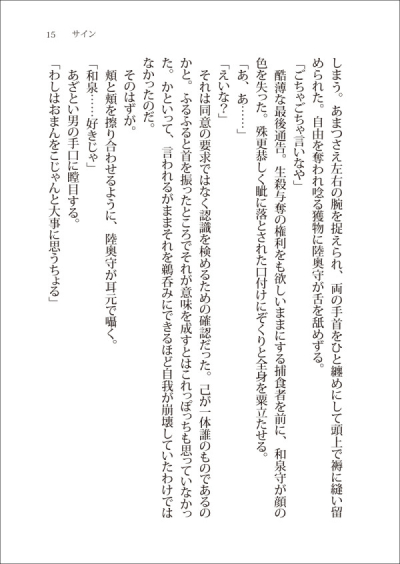 15　サイン
しまう。あまつさえ左右の腕を捉えられ、両の手首をひと纏めにして頭上で褥に縫い留
められた。自由を奪われ唸る獲物に陸奥守が舌を舐めずる。
「ごちゃごちゃ言いなや」
酷薄な最後通告。生殺与奪の権利をも欲しいままにする捕食者を前に、和泉守が顔の
色を失った。殊更恭しく眦に落とされた口付けにぞくりと全身を粟立たせる。
「あ、あ……」
「えいな？」
それは同意の要求ではなく認識を検めるための確認だった。己が一体誰のものであるの
かと。ふるふると首を振ったところでそれが意味を成すとはこれっぽっちも思っていなかっ
た。かといって、言われるがままそれを鵜呑みにできるほど自我が崩壊していたわけでは
なかったのだ。
そのはずが。
「和泉……好きじゃ」
頬と頬を擦り合わせるように、陸奥守が耳元で囁く。
あざとい男の手口に瞠目する。
「わしはおまんをこじゃんと大事に思うちょる」